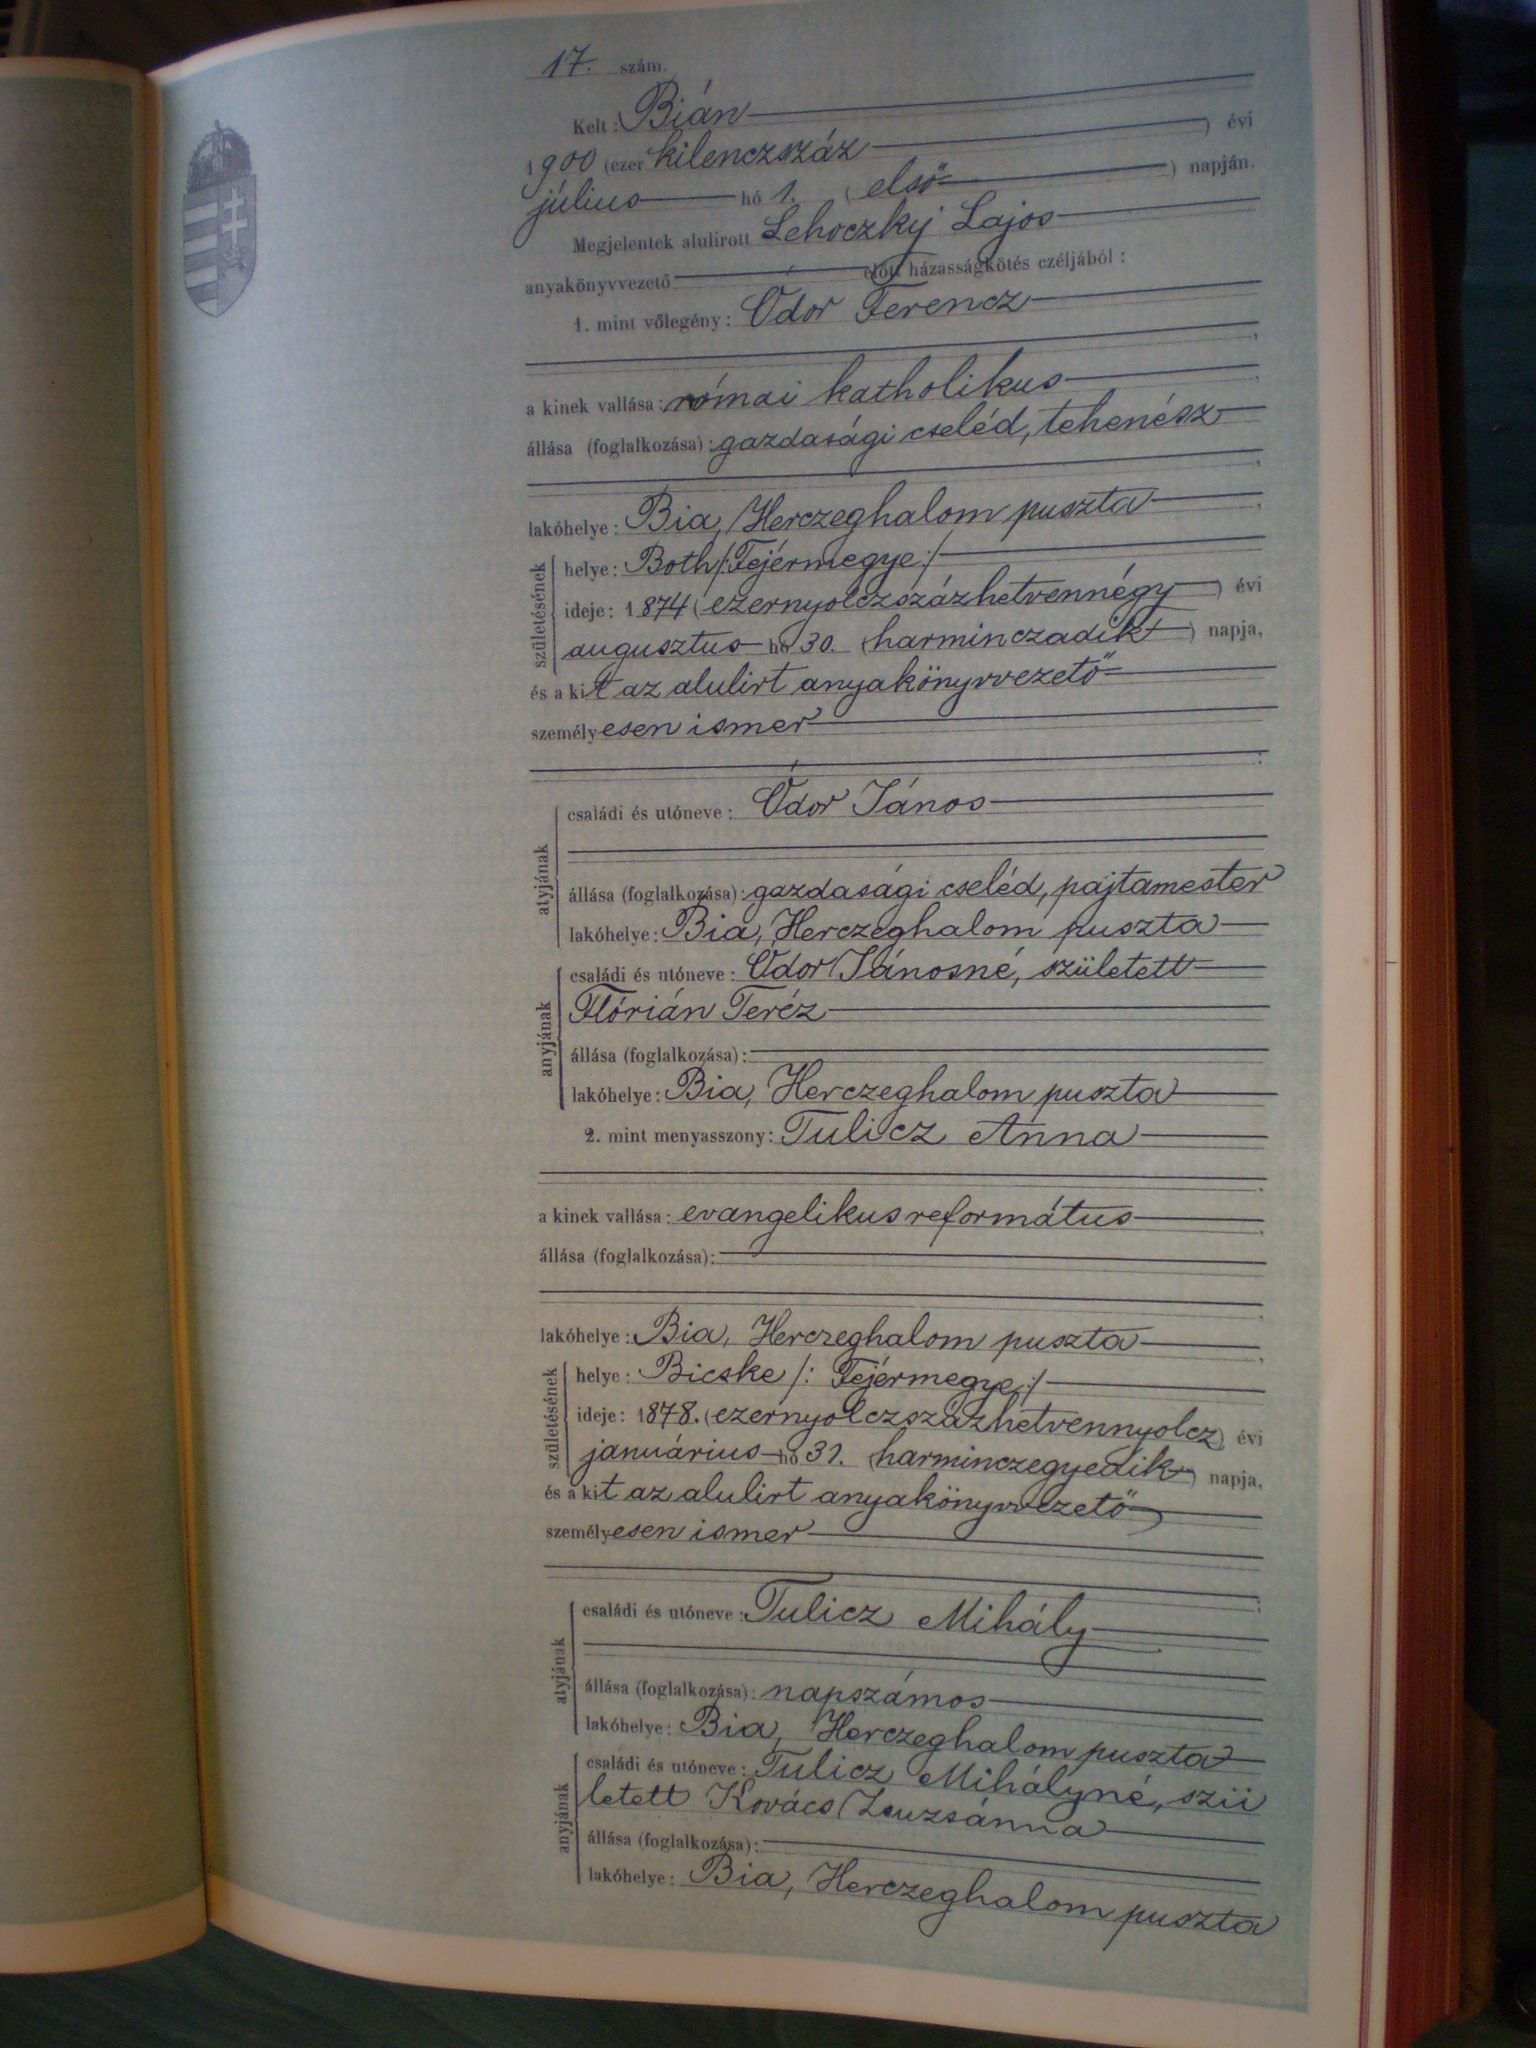 17. szám.
Kelt: Bián
1900 (ezer kilenczszáz ) évi
július hó 1. (első ) napján.
Megjelentek alulirott Lehoczky Lajos
anyakönyvvezető előtt házasságkötés czéljából:
1. mint vőlegény: Ódor Ferencz
a kinek vallása: római katholikus
állása (foglalkozása): gazdasági cseléd, tehenész
lakóhelye: Bia, Herczeghalom puszta
születésének
helye: Both /: Fejérmegye :/
ideje: 1874 (ezernyolczszázhetvennégy ) évi
augusztus hó 30. (harminczadik ) napja,
és a kit az alulirt anyakönyvvezető
személyesen ismer
atyjának
családi és utóneve: Ódor János
állása (foglalkozása): gazdasági cseléd, pajtamester
lakóhelye: Bia, Herczeghalom puszta
anyjának
családi és utóneve: Odor Jánosné, született
Flórián Teréz
állása (foglalkozása):
lakóhelye: Bia, Herczeghalom puszta
2. mint menyasszony: Tulicz Anna
a kinek vallása: evangelikus református
állása (foglalkozása):
lakóhelye: Bia, Herczeghalom puszta
születésének
helye: Bicske /: Fejérmegye :/
ideje: 1878. (ezernyolczszázhetvennyolcz) évi
januárius hó 31. (harminczegyedik ) napja,
és a kit az alulirt anyakönyvvezető
személyesen ismer
atyjának
családi és utóneve: Tulicz Mihály
állása (foglalkozása): napszámos
lakóhelye: Bia, Herczeghalom puszta
anyjának
családi és utóneve: Tulicz Mihályné, szü
letett Kovács Zsuzsánna
állása (foglalkozása):
lakóhelye: Bia, Herczeghalom puszta